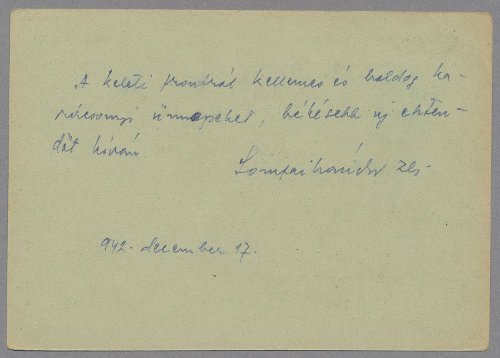 A keleti frontról kellemes és boldog ka-
rácsonyi ünnepeket, békésebb uj eszten-
dőt kíván
942. december 17.